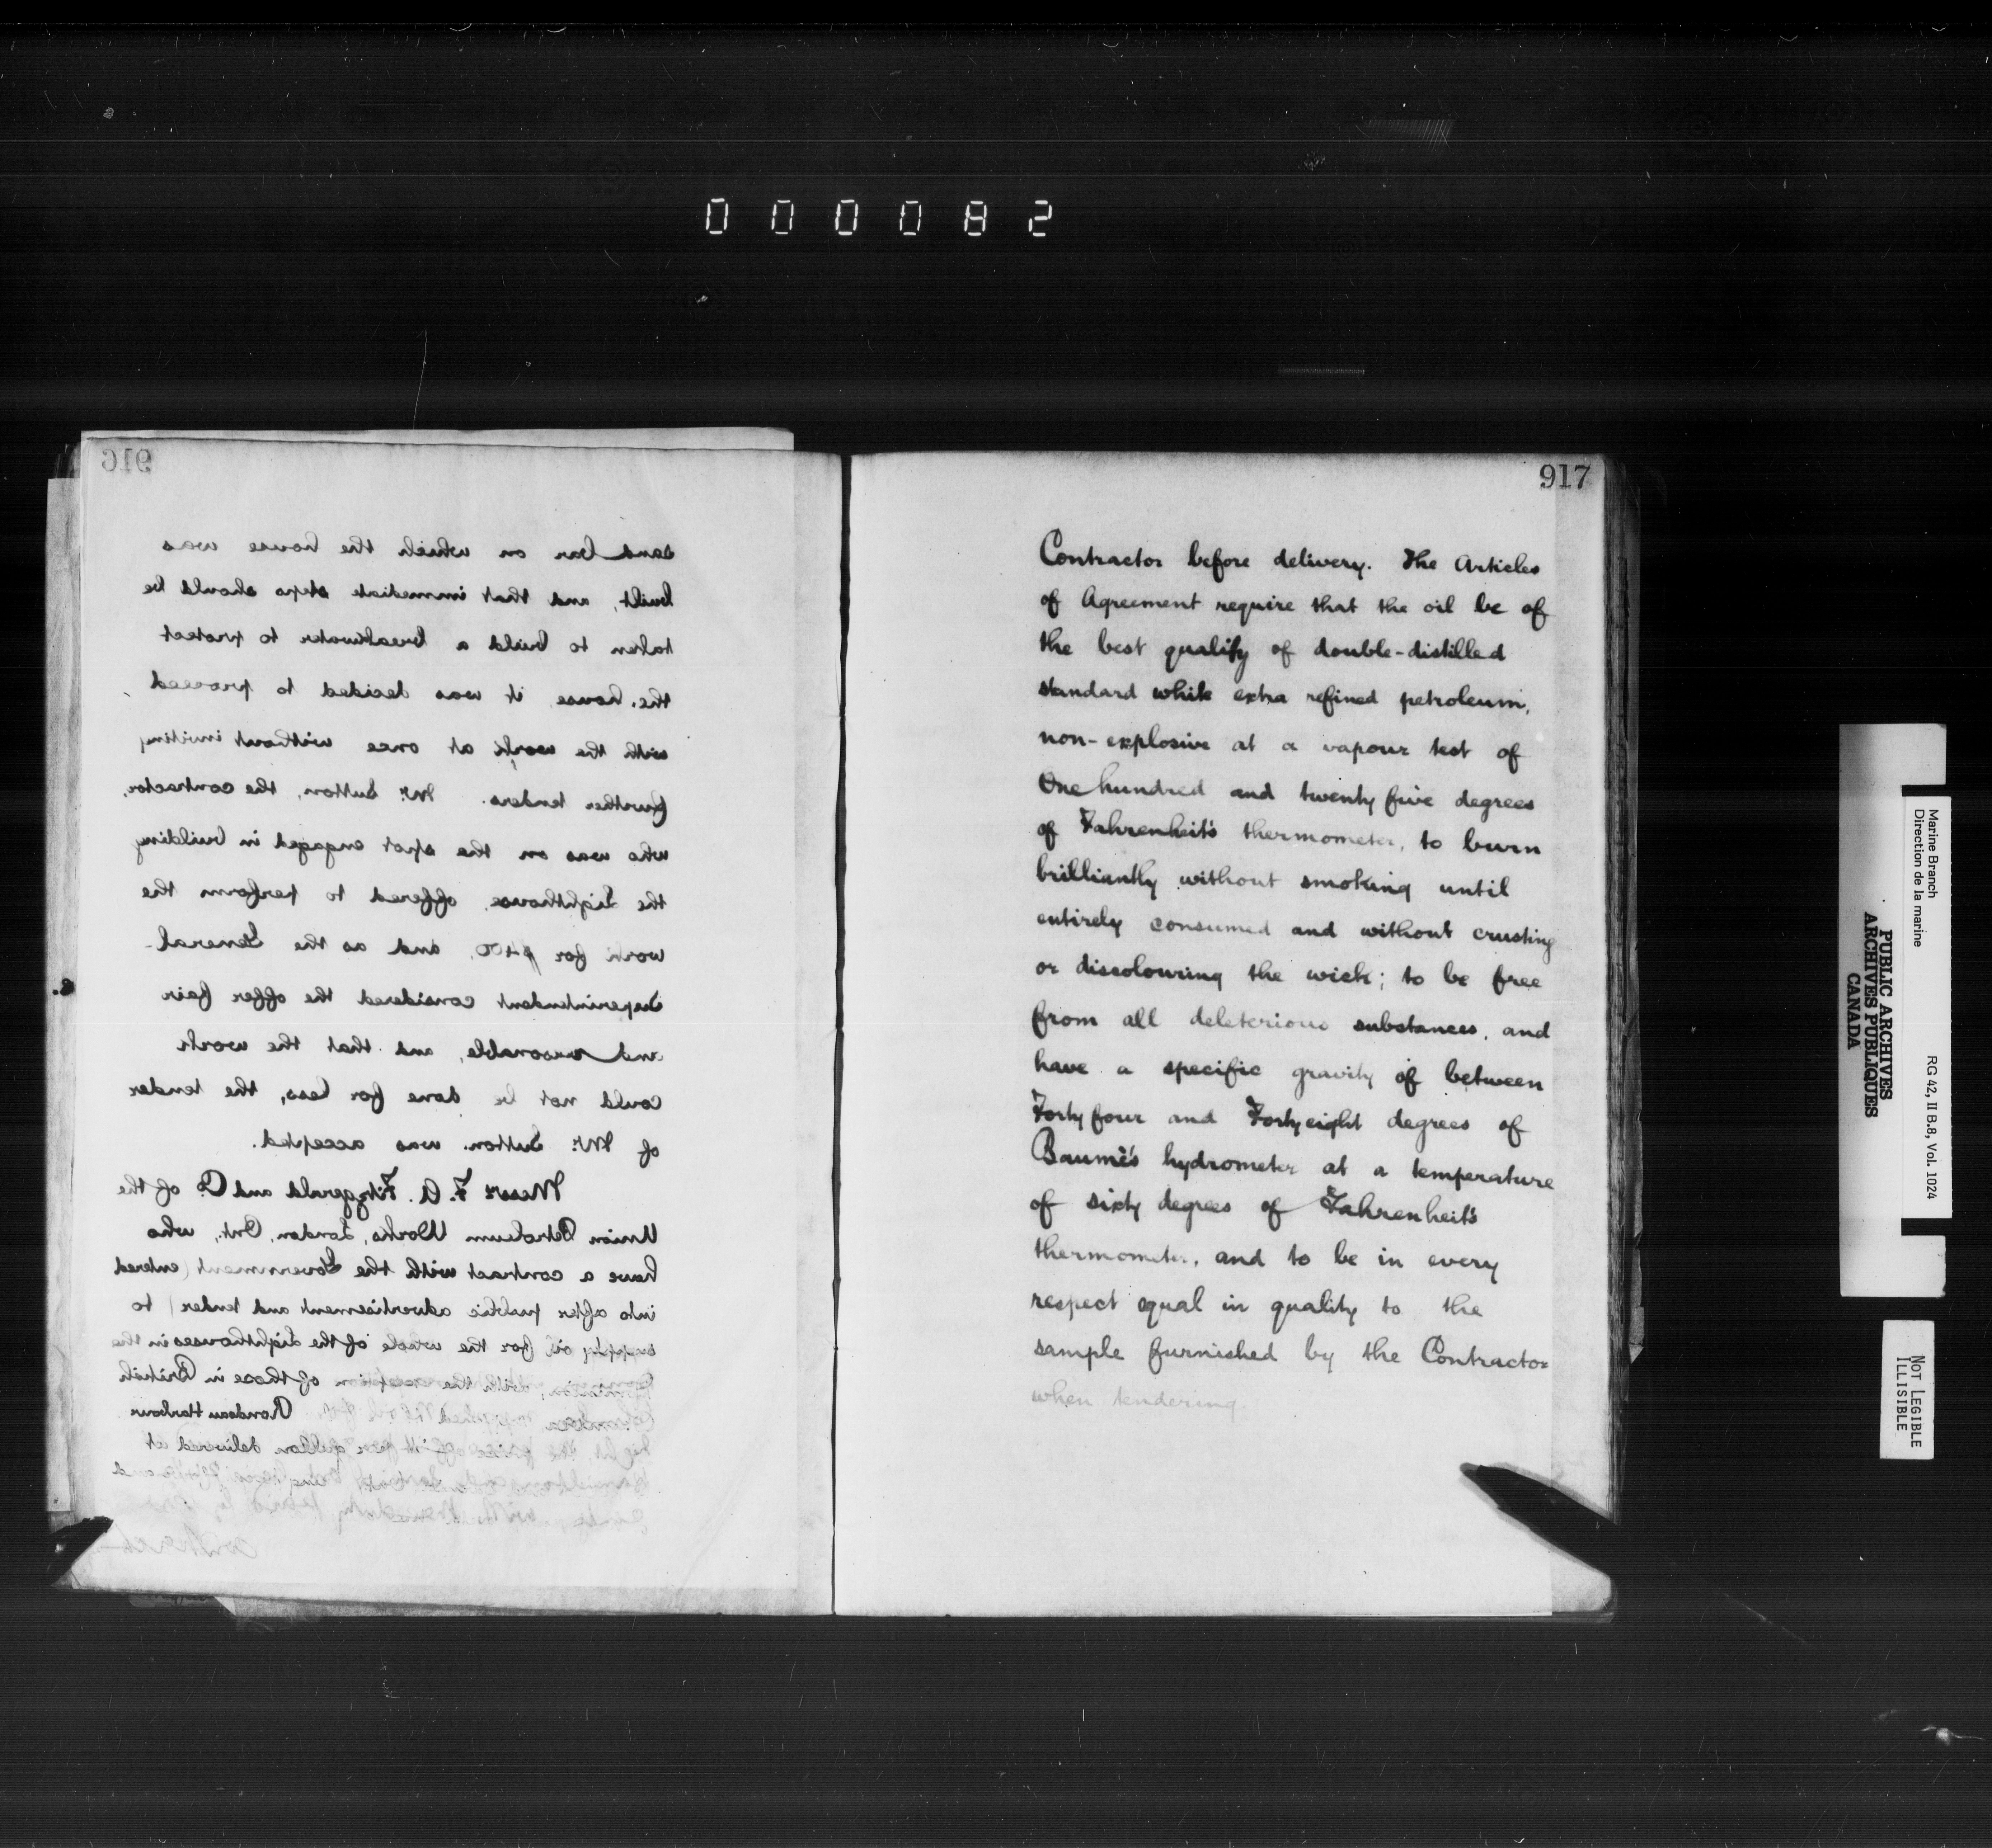 000082
916
sand bar on which the house was
built, and that immediate steps should be
taken to build a breakwater to protect
the house, it was decided to proceed
with the work at once without inviting
further tenders. Mr. Sutton, the contractor,
who was on the spot engaged in building
the Lighthouse, offered to perform the
work for $400, and as the General
Superintendent considered the offer fair
and reasonable, and that the work
could not be done for less, the tender
of Mr. Sutton was accepted.
Messrs F. A. Fitzgerald and Co. of the
Union Petroleum Works, London, Ont., who
have a contract with the Government (entered
into after public advertisement and tender) to
supply oil for the whole of the Lighthouses in the
Dominion, with the exception of those in British
Columbia supplied the oil for Rondeau Harbour
Light, the price of it per gallon delivered at
917
Contractor before delivery. The Articles
of Agreement require that the oil be of
the best quality of double-distilled
standard white extra refined petroleum,
non-explosive at a vapour test of
One hundred and twenty five degrees
of Fahrenheit's thermometer, to burn
brilliantly without smoking until
entirely consumed and without crusting
or discolouring the wick; to be free
from all deleterious substances, and
have a specific gravity of between
Forty four and Forty eight degrees of
Baumé's hydrometer at a temperature
of sixty degrees of Fahrenheit's
thermometer, and to be in every
respect equal in quality to the
sample furnished by the Contractor
when tendering.
Marine Branch
Direction de la marine
RG 42, II B.8, Vol. 1024
PUBLIC ARCHIVES
ARCHIVES PUBLIQUES
CANADA
NOT LEGIBLE
ILLISIBLE